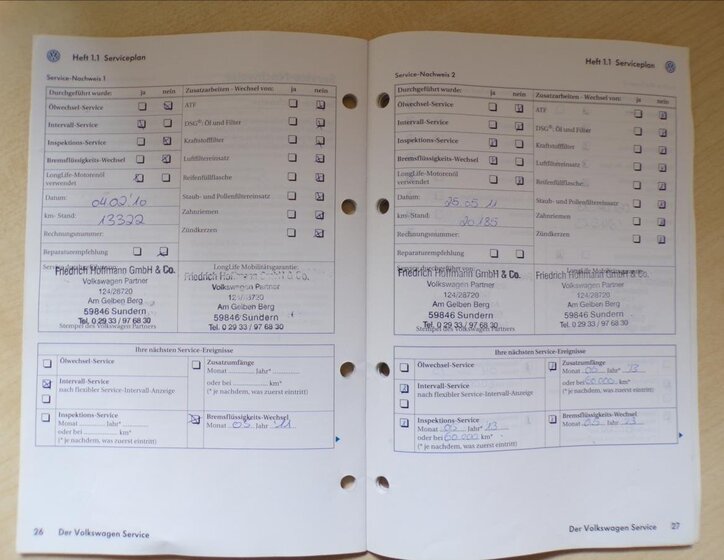 Heft 1.1 Serviceplan
Service-Nachweis 1
Durchgeführt wurde: ja nein
Ölwechsel-Service
Intervall-Service
Inspektions-Service
Bremsflüssigkeits-Wechsel
LongLife-Motorenöl
verwendet
Datum: 04.02.'10
km-Stand: 13322
Rechnungsnummer:
Reparaturempfehlung
Zusatzarbeiten - Wechsel von: ja nein
ATF
DSG®-Öl und Filter
Kraftstofffilter
Luftfiltereinsatz
Reifenfüllflasche
Staub- und Pollenfiltereinsatz
Zahnriemen
Zündkerzen
Friedrich Hoffmann GmbH & Co.
Volkswagen Partner
124/28720
Am Gelben Berg
59846 Sundern
Tel. 0 29 33 / 97 68 30
Stempel des Volkswagen Partners
LongLife Mobilitätsgarantie:
Friedrich Hoffmann GmbH & Co.
Volkswagen Partner
124/28720
Am Gelben Berg
59846 Sundern
Tel. 0 29 33 / 97 68 30
Ihre nächsten Service-Ereignisse
Ölwechsel-Service
Intervall-Service
nach flexibler Service-Intervall-Anzeige
Inspektions-Service
Monat ............ Jahr* ............
oder bei .................. km*
(* je nachdem, was zuerst eintritt)
Zusatzumfänge
Monat ............ Jahr* ............
oder bei .................. km*
(* je nachdem, was zuerst eintritt)
Bremsflüssigkeits-Wechsel
Monat 05 Jahr 11
26 Der Volkswagen Service
Heft 1.1 Serviceplan
Service-Nachweis 2
Durchgeführt wurde: ja nein
Ölwechsel-Service
Intervall-Service
Inspektions-Service
Bremsflüssigkeits-Wechsel
LongLife-Motorenöl
verwendet
Datum: 25.05.11
km-Stand: 20185
Rechnungsnummer:
Reparaturempfehlung
Zusatzarbeiten - Wechsel von: ja nein
ATF
DSG®-Öl und Filter
Kraftstofffilter
Luftfiltereinsatz
Reifenfüllflasche
Staub- und Pollenfiltereinsatz
Zahnriemen
Zündkerzen
Service durchgeführt vom:
Friedrich Hoffmann GmbH & Co.
Volkswagen Partner
124/28720
Am Gelben Berg
59846 Sundern
Tel. 0 29 33 / 97 68 30
Stempel des Volkswagen Partners
LongLife Mobilitätsgarantie:
Friedrich Hoffmann GmbH & Co.
Volkswagen Partner
124/28720
Am Gelben Berg
59846 Sundern
Tel. 0 29 33 / 97 68 30
Ihre nächsten Service-Ereignisse
Ölwechsel-Service
Intervall-Service
nach flexibler Service-Intervall-Anzeige
Inspektions-Service
Monat Jahr* 13
oder bei 60.000 km*
(* je nachdem, was zuerst eintritt)
Zusatzumfänge
Monat Jahr* 13
oder bei 60.000 km*
(* je nachdem, was zuerst eintritt)
Bremsflüssigkeits-Wechsel
Monat 05 Jahr 13
Der Volkswagen Service 27